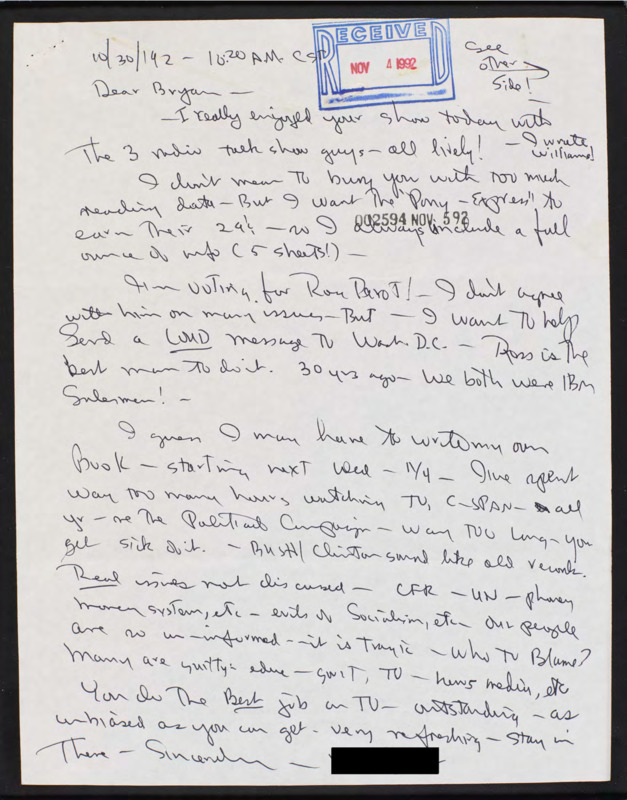 10/30/92 - 10:20 AM. CST
RECEIVED
NOV 4 1992
See
other
Side!
Dear Bryan -
- I really enjoyed your show today with
The 3 radio talk show guys - all lively! - I wrote
Williams!
I don't mean To bury you with too much
reading data - But I want The "Pony - Express" to
earn Their 29¢ - so I always include a full
002594 NOV. 592
ounce of info (5 sheets!) -
I'm voting for Ross Perot! - I don't agree
with him on many issues - But - I want To help
Send a LOUD message To Wash. D.C. - Ross is The
best man To do it. 30 yrs ago - we both were IBM
Salesmen! -
I guess I may have to write my own
Book - starting next Wed - 11/4 - I've spent
way too many hours watching TV, C-SPAN - all
yr - re The Political Campaign - way TOO Long - you
get sick of it. - BUSH/Clinton sound like old records.
Real issues not discussed - CFR - UN - phoney
money system, etc - evils of Socialism, etc - Our people
are so un-informed - it is Tragic - Who To Blame?
Many are guilty: educ - gov't, TV - news media, etc
You do The Best job on TV - outstanding - as
unbiased as you can get - very refreshing - Stay in
There - Sincerely -